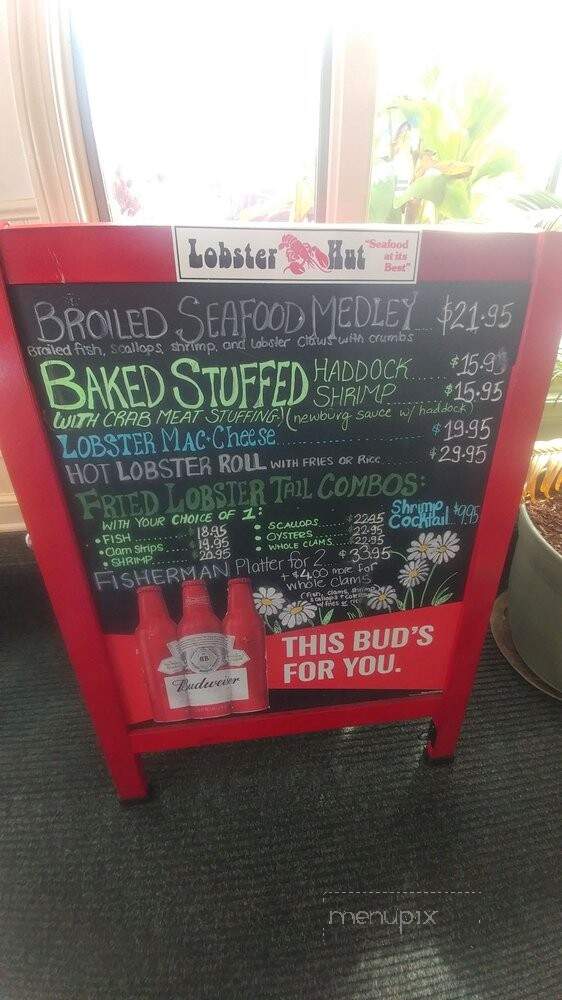 Lobster Hut "Seafood at its Best"
BROILED SEAFOOD MEDLEY... $21.95
Broiled fish, scallops, shrimp, and lobster claws with crumbs
BAKED STUFFED
HADDOCK........ $15.9
SHRIMP........ $15.95
(WITH CRAB MEAT STUFFING) (newburg sauce w/ haddock)
LOBSTER MAC+Cheese........ $19.95
HOT LOBSTER ROLL WITH FRIES OR RICE... $29.95
FRIED LOBSTER TAIL COMBOS:
WITH YOUR CHOICE OF 1:
• FISH........ 18.95
• Clam strips.... 19.95
• SHRIMP....... 20.95
• SCALLOPS........ 22.95
• OYSTERS........ 22.95
• WHOLE CLAMS... 22.95
Shrimp Cocktail.. $9.95
FISHERMAN Platter for 2 $33.95
+ $4.00 more for
whole clams
(Fish, clams, shrimp,
scallops +
w/ fries
THIS BUD'S
FOR YOU.
Budweiser
menupix